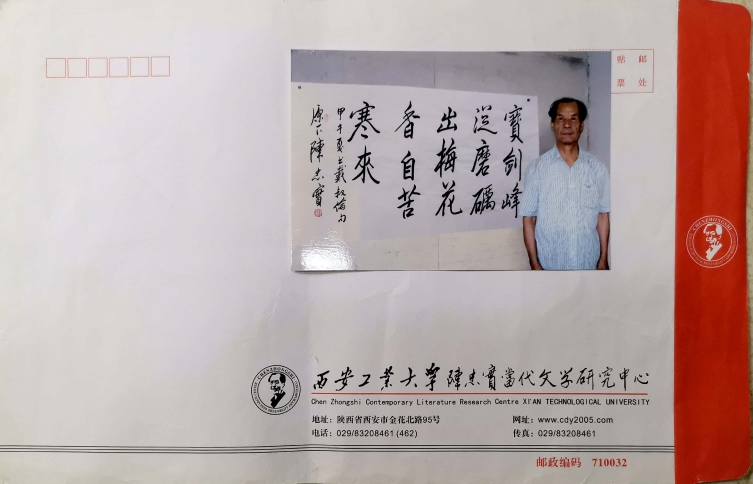 贴 邮
票 处
寶劍峰
從磨礪
出梅花
香自苦
寒來
甲午夏書戴叔倫句
原下陳忠實
CHENZHONGSHI
CHENZHONGSHI
西安工業大學陳忠實當代文学研究中心
Chen Zhongshi Contemporary Literature Research Centre XI'AN TECHNOLOGICAL UNIVERSITY
地址：陕西省西安市金花北路95号
网址：www.cdy2005.com
电话：029/83208461 (462)
传真：029/83208461
邮政编码 710032